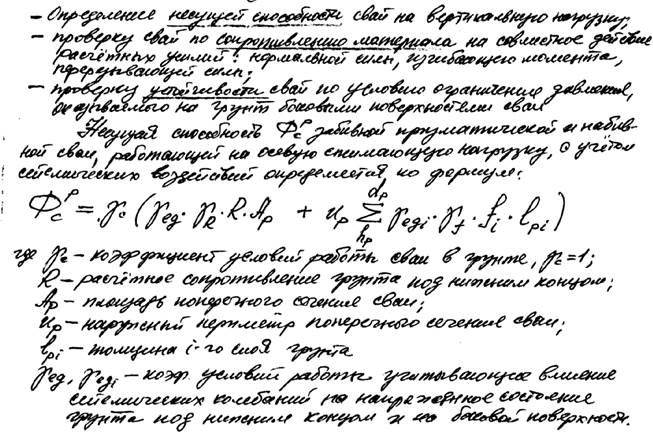 – Определение несущей способности свай на вертикальную нагрузку;
– проверку свай по сопротивлению материала на совместное действие
расчётных усилий: нормальной силы, изгибающего момента,
перерезывающей силы;
– проверку устойчивости свай по условию ограничения давления,
оказываемого на грунт боковыми поверхностями сваи
Несущая способность Фсᵖ забивной призматической и набив-
ной сваи, работающей на осевую сжимающую нагрузку, с учётом
сейсмических воздействий определяется по формуле:
Фсᵖ = γc (γед · γR · R · Ap + up ∑ γедi · γf · fi · lpi)
где γc – коэффициент условий работы сваи в грунте, γc=1;
R – расчётное сопротивление грунта под нижним концом;
Ap – площадь поперечного сечения сваи;
up – наружный периметр поперечного сечения сваи;
lpi – толщина i-го слоя грунта
γед, γедi – коэф. условий работы учитывающие влияние
сейсмических колебаний на напряженное состояние
грунта под нижним концом и на боковой поверхности.